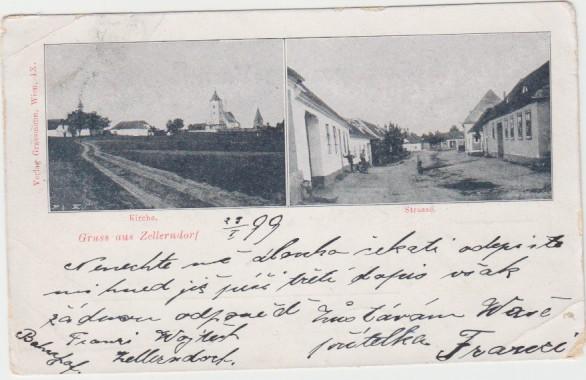 Verlag Grassmann, Wien, IX.
Kirche.
Strasse.
Gruss aus Zellerndorf
99
Nenechte mě dlouho čekati odepište
mi hned již píši třetí dopis však
žádnou odpověď Zůstávám Vaše
přítelkyně
Franzi
Zellerndorf.
Bahnhof